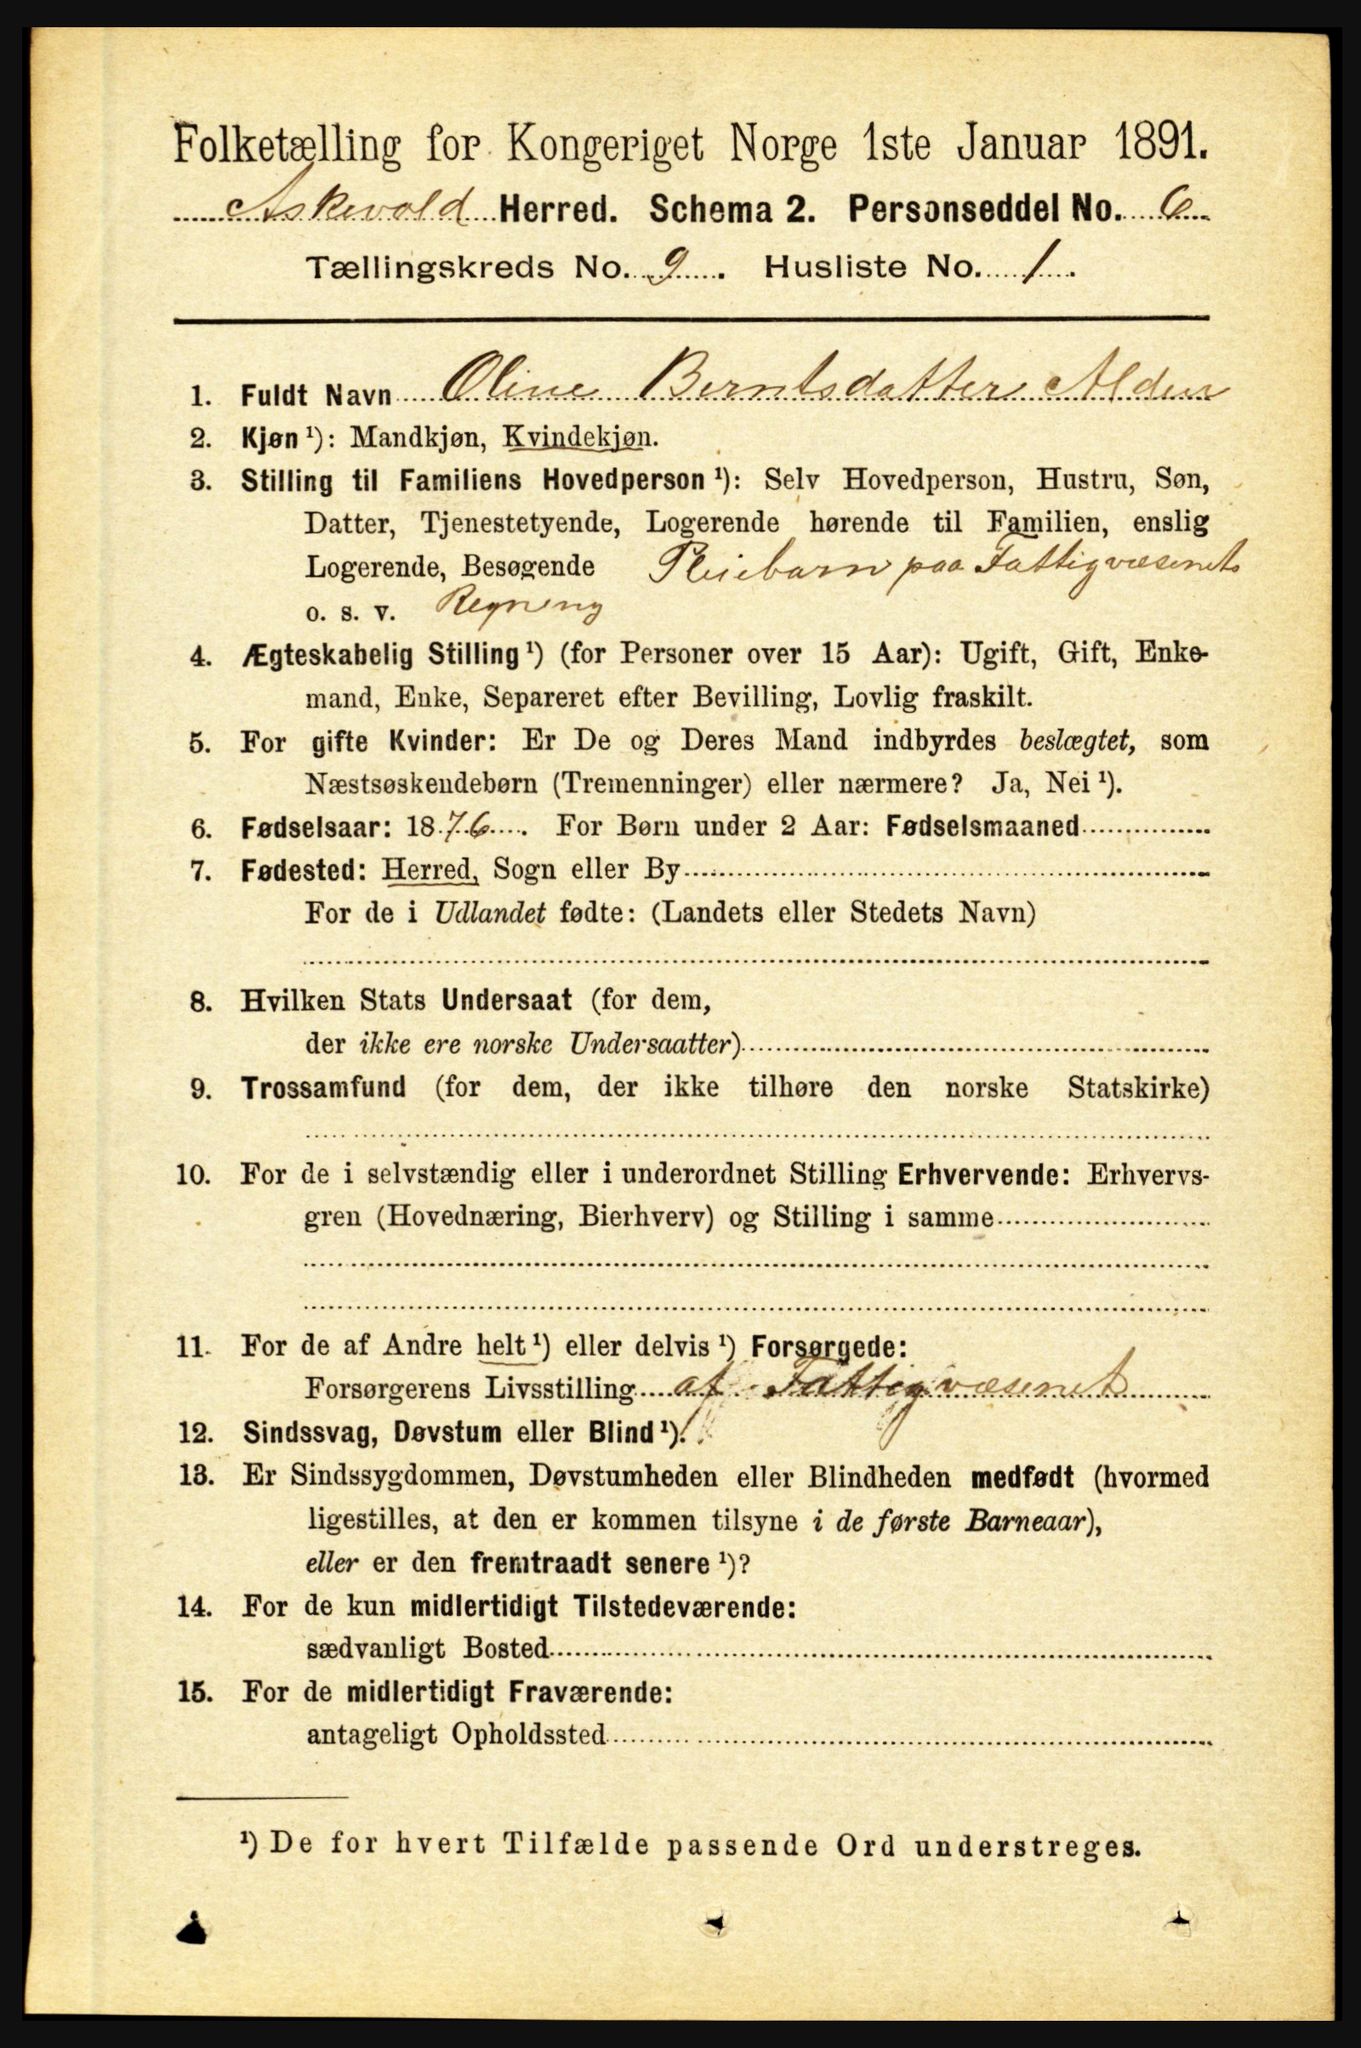 Folketælling for Kongeriget Norge 1ste Januar 1891.
Askevold Herred. Schema 2. Personseddel No. 6
Tællingskreds No. 9. Husliste No. 1.
1. Fuldt Navn Oline Berntsdatter Alden
2. Kjøn ¹): Mandkjøn, Kvindekjøn.
3. Stilling til Familiens Hovedperson ¹): Selv Hovedperson, Hustru, Søn,
Datter, Tjenestetyende, Logerende hørende til Familien, enslig
Logerende, Besøgende Pleiebarn paa Fattigvæsenets
o. s. v. Regning
4. Ægteskabelig Stilling ¹) (for Personer over 15 Aar): Ugift, Gift, Enke-
mand, Enke, Separeret efter Bevilling, Lovlig fraskilt.
5. For gifte Kvinder: Er De og Deres Mand indbyrdes beslægtet, som
Næstsøskendebørn (Tremenninger) eller nærmere? Ja, Nei ¹).
6. Fødselsaar: 1876. For Børn under 2 Aar: Fødselsmaaned
7. Fødested: Herred, Sogn eller By
For de i Udlandet fødte: (Landets eller Stedets Navn)
8. Hvilken Stats Undersaat (for dem,
der ikke ere norske Undersaatter)
9. Trossamfund (for dem, der ikke tilhøre den norske Statskirke)
10. For de i selvstændig eller i underordnet Stilling Erhvervende: Erhvervs-
gren (Hovednæring, Bierhverv) og Stilling i samme
11. For de af Andre helt ¹) eller delvis ¹) Forsørgede:
Forsørgerens Livsstilling af Fattigvæsenet
12. Sindssvag, Døvstum eller Blind ¹).
13. Er Sindssygdommen, Døvstumheden eller Blindheden medfødt (hvormed
ligestilles, at den er kommen tilsyne i de første Barneaar),
eller er den fremtraadt senere ¹)?
14. For de kun midlertidigt Tilstedeværende:
sædvanligt Bosted
15. For de midlertidigt Fraværende:
antageligt Opholdssted
¹) De for hvert Tilfælde passende Ord understreges.